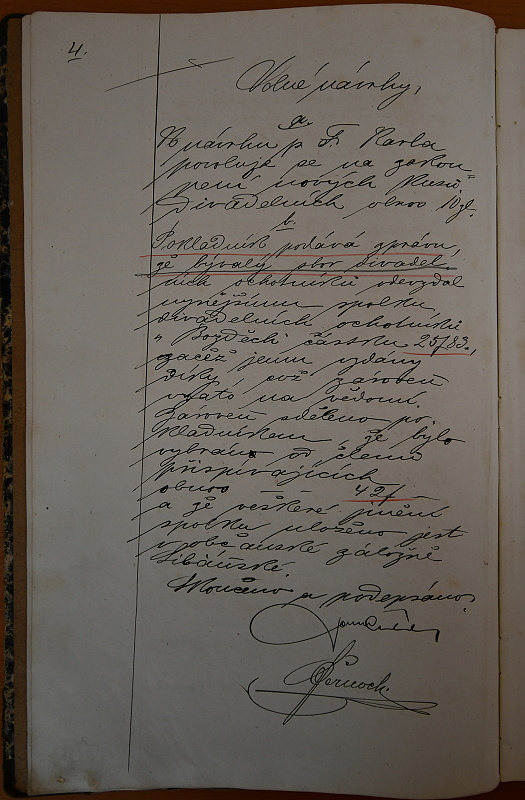 4.
Volné návrhy,
a.
K návrhu p. F. Karla
povoluje se na zakou-
pení nových kusů
divadelních obnos 10 zl.
b.
Pokladník podává zprávu,
že bývalý sbor divadel-
ních ochotníků odevzdal
nynějšímu spolku
divadelních ochotníků
„Bozděch" částku 25/83.,
začež jemu vzdány
díky, což zároveň
vzato na vědomí.
Zároveň sděleno po-
kladníkem, že bylo
vybráno od členů
přispívajících
obnos — 42/—
a že veškeré jmění
spolku uloženo jest
v občanské záložně
Libáňské.
Skončeno a podepsáno.
Černoch.